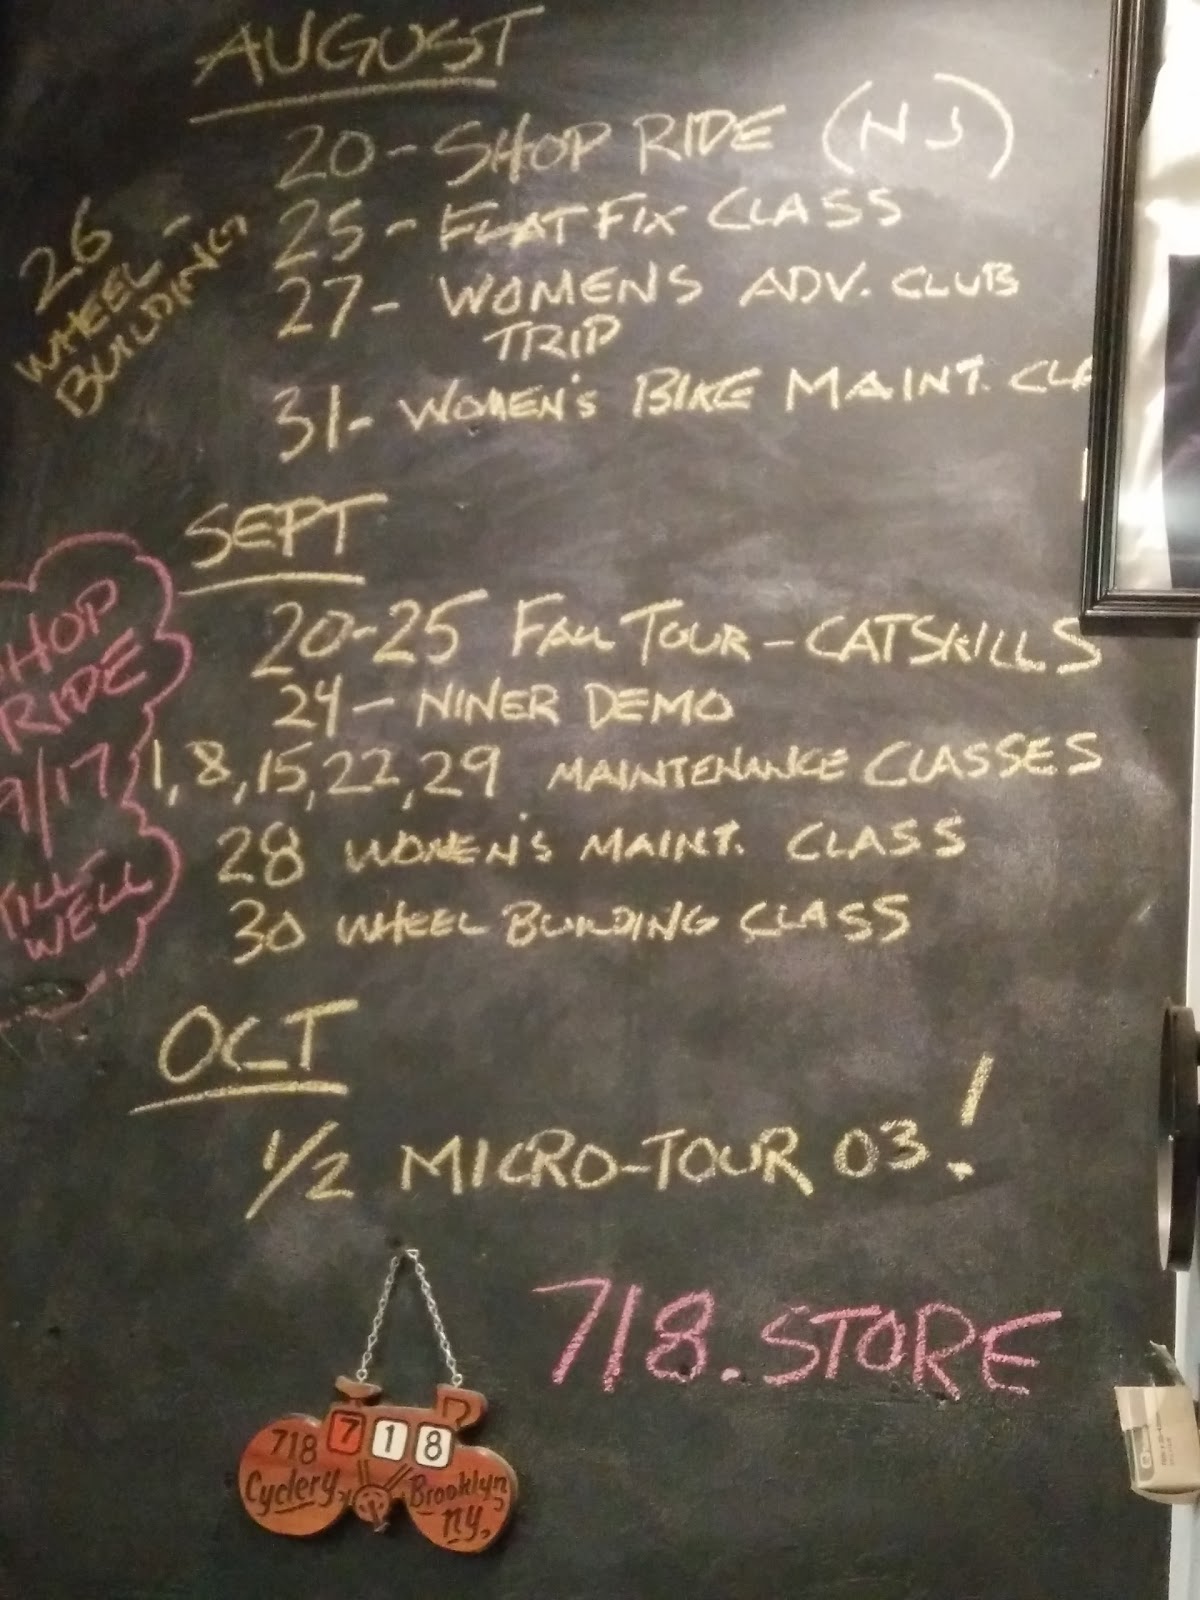 AUGUST
20 - SHOP RIDE (NJ)
25 - FLAT FIX CLASS
26 -
WHEEL
BUILDING
27 - WOMENS ADV. CLUB
TRIP
31 - WOMEN'S BIKE MAINT. CLA
SEPT
20-25 FALL TOUR - CATSKILLS
24 - NINER DEMO
1, 8, 15, 22, 29 MAINTENANCE CLASSES
28 WOMEN'S MAINT. CLASS
30 WHEEL BUILDING CLASS
SHOP
RIDE
9/17
TILL-
WELL
OCT
1/2 MICRO-TOUR 03!
718.STORE
718
718 Cyclery
Brooklyn
NY